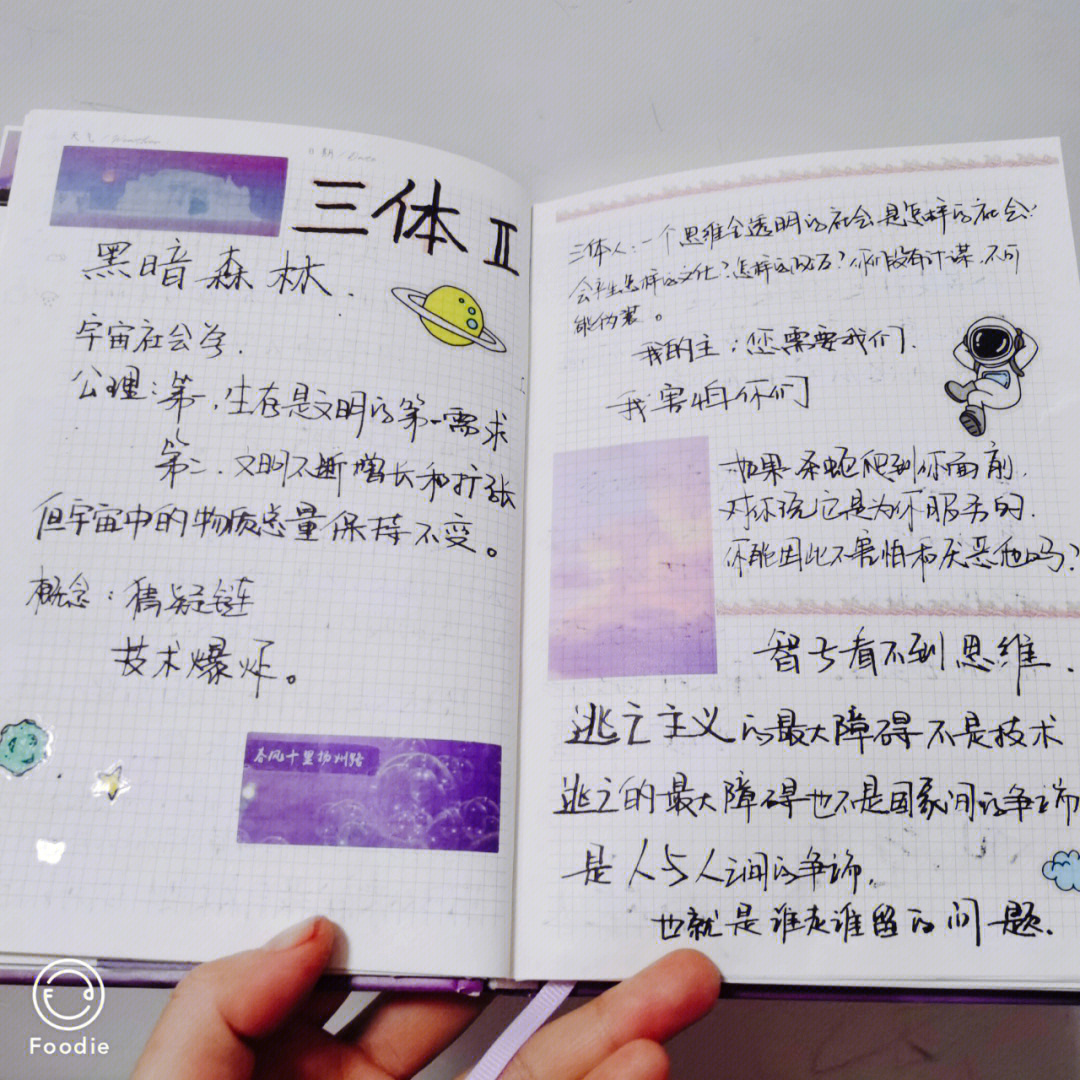 天气 / Weather
日期 / Date
三体 II
黑暗森林.
宇宙社会学.
公理:第一,生存是文明的第一需求
第二、文明不断增长和扩张
但宇宙中的物质总量保持不变。
概念:猜疑链
技术爆炸。
春风十里扬州路
三体人:一个思维全透明的社会是怎样的社会?
会产生怎样的文化?怎样的政治?你们没有计谋,不可
能伪装。
我的主:您需要我们.
我害怕你们
如果一条蛇爬到你面前,
对你说它是为你服务的.
你能因此不害怕和厌恶他吗?
智子看不到思维.
逃亡主义的最大障碍不是技术
逃亡的最大障碍也不是国家间的争端
是人与人之间的争端,
也就是谁走谁留的问题.
Foodie